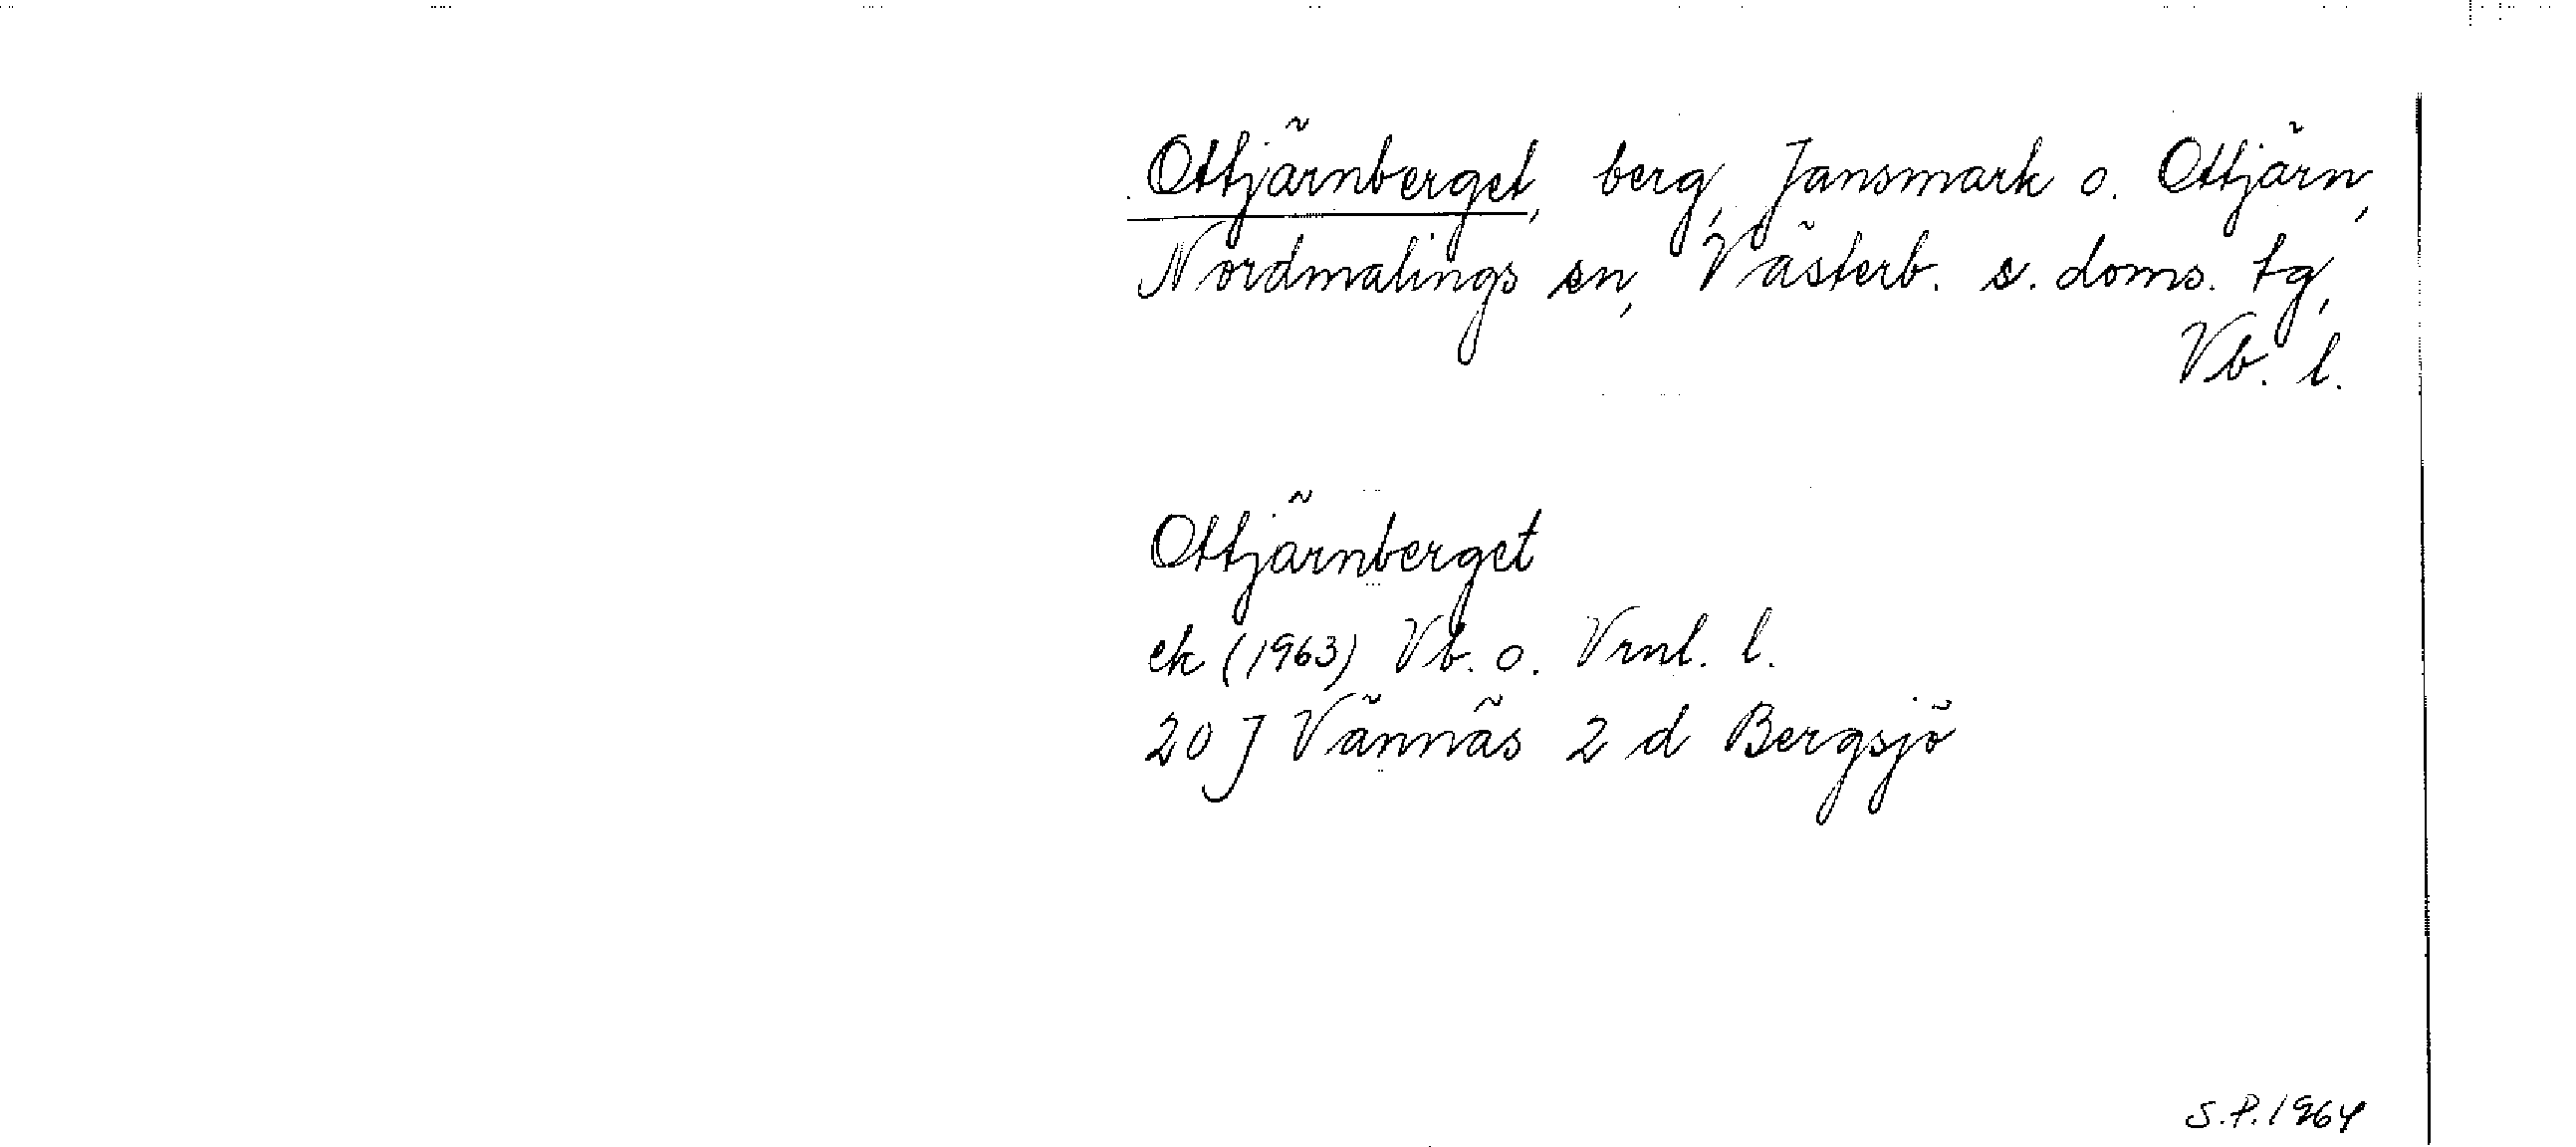 Ottjärnberget, berg, Jansmark o. Ottjärn,
Nordmalings sn, Västerb. s. doms. tg,
Vb. l.
Ottjärnberget
ek (1963) Vb. o. Vrnl. l.
20 J Vännäs 2 d Bergsjö
S.P. 1964